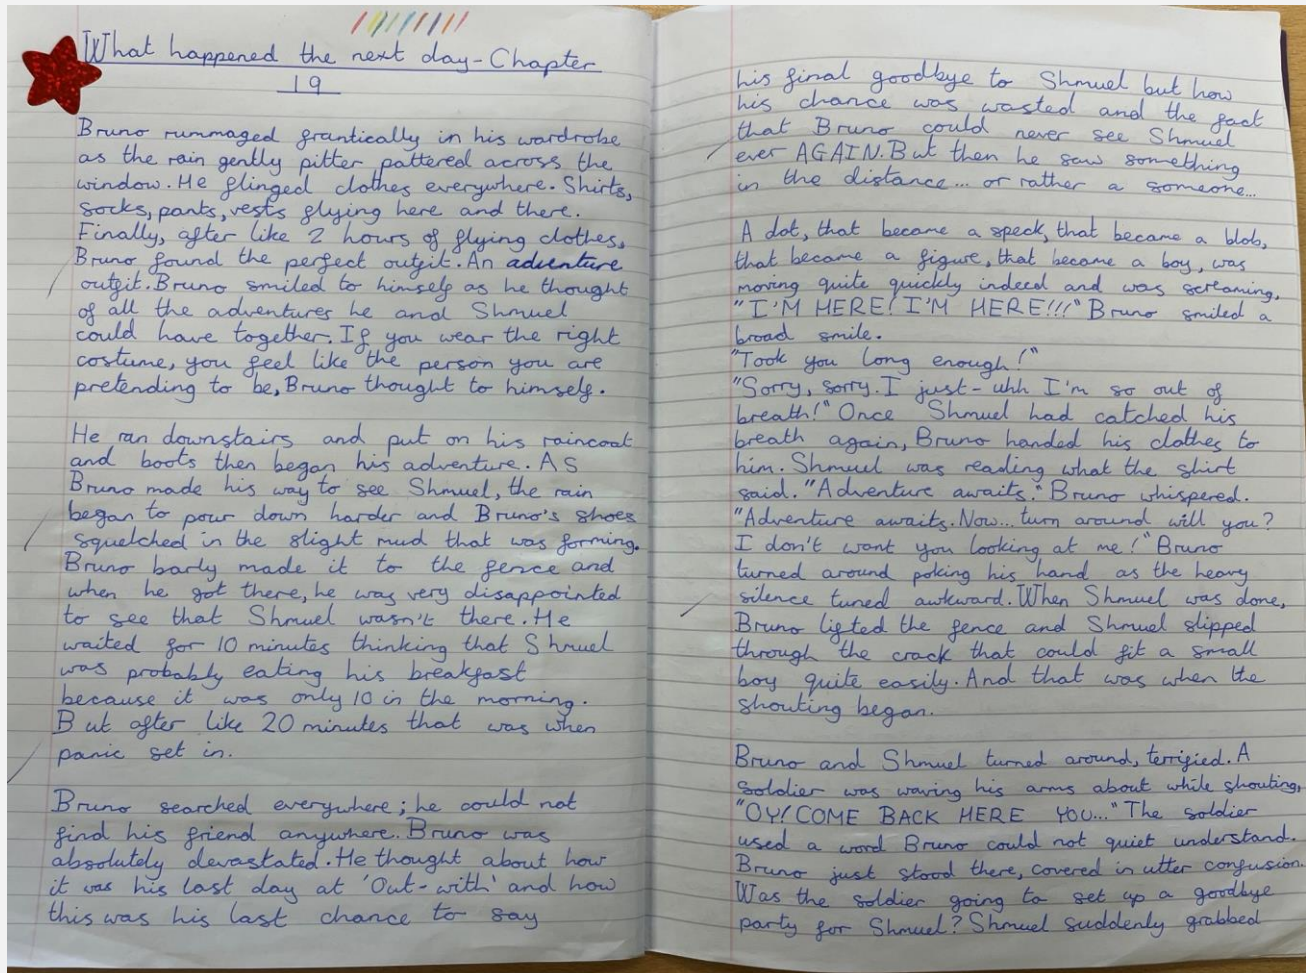 What happened the next day - Chapter
19
Bruno rummaged frantically in his wardrobe
as the rain gently pitter pattered across the
window. He flinged clothes everywhere. Shirts,
socks, pants, vests flying here and there.
Finally, after like 2 hours of flying clothes,
Bruno found the perfect outfit. An adventure
outfit. Bruno smiled to himself as he thought
of all the adventures he and Shmuel
could have together. If you wear the right
costume, you feel like the person you are
pretending to be, Bruno thought to himself.
He ran downstairs and put on his raincoat
and boots then began his adventure. As
Bruno made his way to see Shmuel, the rain
began to pour down harder and Bruno's shoes
squelched in the slight mud that was forming.
Bruno barly made it to the fence and
when he got there, he was very disappointed
to see that Shmuel wasn't there. He
waited for 10 minutes thinking that Shmuel
was probably eating his breakfast
because it was only 10 in the morning.
But after like 20 minutes that was when
panic set in.
Bruno searched everywhere; he could not
find his friend anywhere. Bruno was
absolutely devastated. He thought about how
it was his last day at 'Out-with' and how
this was his last chance to say
his final goodbye to Shmuel but how
his chance was wasted and the fact
that Bruno could never see Shmuel
ever AGAIN. But then he saw something
in the distance... or rather a someone...
A dot, that became a speck, that became a blob,
that became a figure, that became a boy, was
moving quite quickly indeed and was screaming,
"I'M HERE! I'M HERE!!!" Bruno smiled a
broad smile.
"Took you long enough!"
"Sorry, sorry. I just - uhh I'm so out of
breath!" Once Shmuel had catched his
breath again, Bruno handed his clothes to
him. Shmuel was reading what the shirt
said. "Adventure awaits." Bruno whispered.
"Adventure awaits. Now... turn around will you?
I don't want you looking at me!" Bruno
turned around poking his hand as the heavy
silence tuned awkward. When Shmuel was done,
Bruno lifted the fence and Shmuel slipped
through the crack that could fit a small
boy quite easily. And that was when the
shouting began.
Bruno and Shmuel turned around, terrified. A
soldier was waving his arms about while shouting,
"OY! COME BACK HERE YOU..." The soldier
used a word Bruno could not quiet understand.
Bruno just stood there, covered in utter confusion.
Was the soldier going to set up a goodbye
party for Shmuel? Shmuel suddenly grabbed